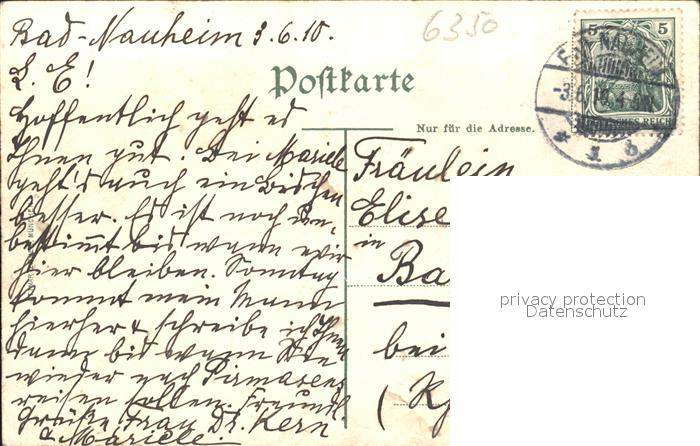 Bad-Nauheim 3.6.10.
6350
L. E!
Postkarte
Hoffentlich geht es
Ihnen gut. Bei Mariele
geht's auch ein bischen
besser. Es ist noch un-
bestimmt bis wann wir
hier bleiben. Sonntag
kommt mein Mann
hierher & schreibe ich Ihnen
dann bis wann Sie
wieder nach Pirmasens
reisen sollen. Freundl.
Grüße Frau Dr. Kern
& Mariele.
5 5
NAUHEIM
REICH
Nur für die Adresse.
Fräulein
Elise
in
Ba
bei
privacy protection
Datenschutz